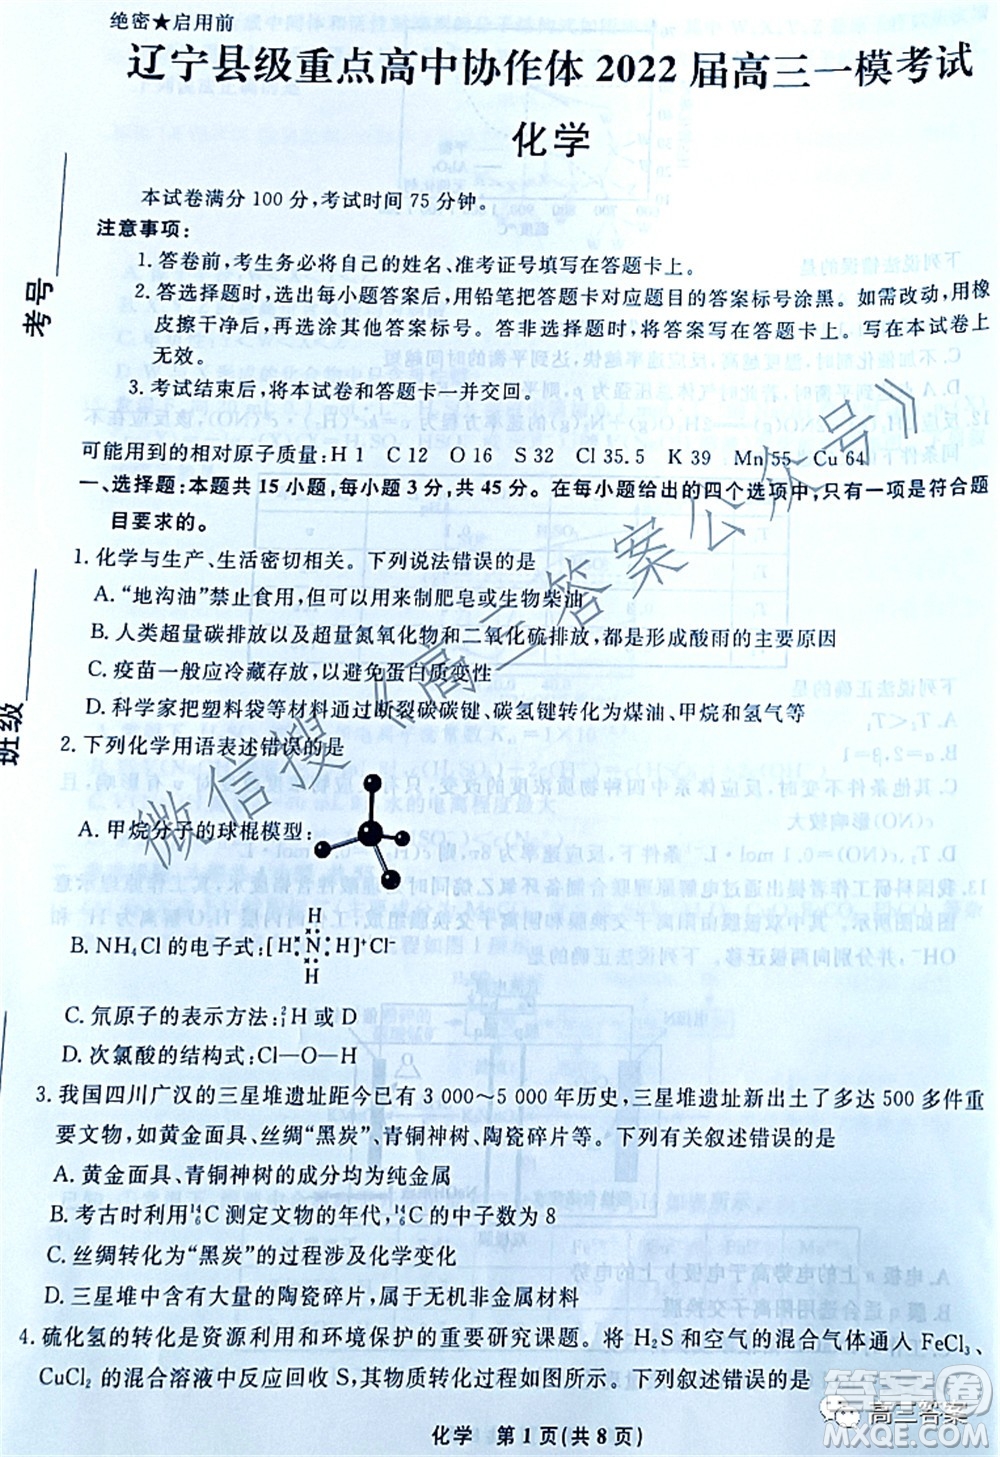 绝密★启用前
辽宁县级重点高中协作体2022届高三一模考试
化学
本试卷满分100分,考试时间75分钟。
注意事项:
1. 答卷前,考生务必将自己的姓名、准考证号填写在答题卡上。
2. 答选择题时,选出每小题答案后,用铅笔把答题卡对应题目的答案标号涂黑。如需改动,用橡
皮擦干净后,再选涂其他答案标号。答非选择题时,将答案写在答题卡上。写在本试卷上
无效。
3. 考试结束后,将本试卷和答题卡一并交回。
可能用到的相对原子质量:H 1 C 12 O 16 S 32 Cl 35.5 K 39 Mn 55 Cu 64
一、选择题:本题共15小题,每小题3分,共45分。在每小题给出的四个选项中,只有一项是符合题
目要求的。
1. 化学与生产、生活密切相关。下列说法错误的是
A. “地沟油”禁止食用,但可以用来制肥皂或生物柴油
B. 人类超量碳排放以及超量氮氧化物和二氧化硫排放,都是形成酸雨的主要原因
C. 疫苗一般应冷藏存放,以避免蛋白质变性
D. 科学家把塑料袋等材料通过断裂碳碳键、碳氢键转化为煤油、甲烷和氢气等
2. 下列化学用语表述错误的是
A. 甲烷分子的球棍模型:
B. NH₄Cl的电子式:[H N H]⁺Cl⁻
H
H
C. 氘原子的表示方法:²₁H或D
D. 次氯酸的结构式:Cl—O—H
3. 我国四川广汉的三星堆遗址距今已有3 000～5 000年历史,三星堆遗址新出土了多达500多件重
要文物,如黄金面具、丝绸“黑炭”、青铜神树、陶瓷碎片等。下列有关叙述错误的是
A. 黄金面具、青铜神树的成分均为纯金属
B. 考古时利用¹⁴₆C测定文物的年代,¹⁴₆C的中子数为8
C. 丝绸转化为“黑炭”的过程涉及化学变化
D. 三星堆中含有大量的陶瓷碎片,属于无机非金属材料
4. 硫化氢的转化是资源利用和环境保护的重要研究课题。将H₂S和空气的混合气体通入FeCl₃、
CuCl₂的混合溶液中反应回收S,其物质转化如图所示。下列叙述错误的是
化学 第1页(共8页)
考号
班级
微信搜《高三答案公众号》
高三答案
答案圈
MXQE.COM